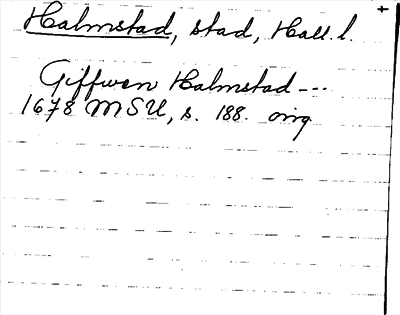 Halmstad, stad, Hall. l.
Giffwen Halmstad ---
1678 MSU, s. 188. orig